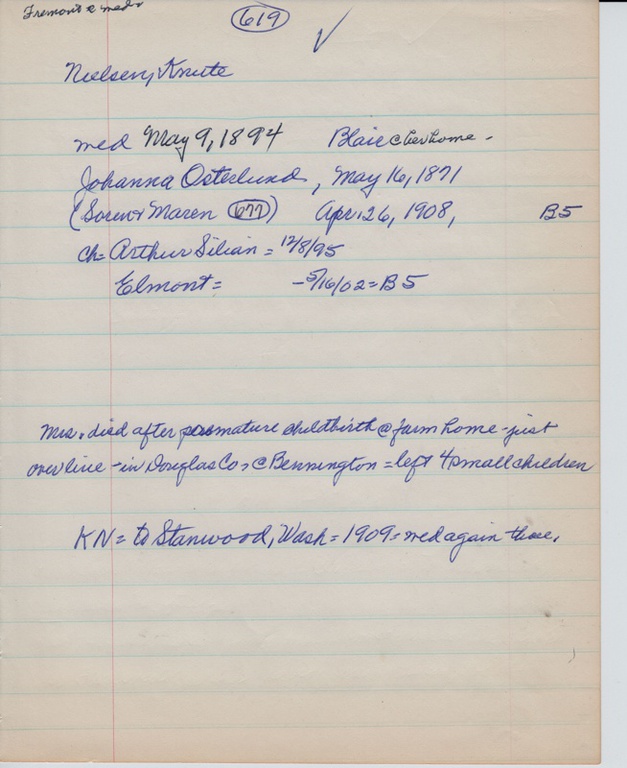 Fremont & med
619 ✓
Nielsen, Knute
med May 9, 1894 Blair @ her home -
Johanna Osterlund, May 16, 1871
(Soren & Maren 677) Apr. 26, 1908, B5
ch = Arthur Silian = 12/8/95
Elmont = - 5/16/02 = B5
Mrs. died after premature childbirth @ farm home - just
over line - in Douglas Co, @ Bennington = left 4 small children
KN = to Stanwood, Wash = 1909 = med again there.